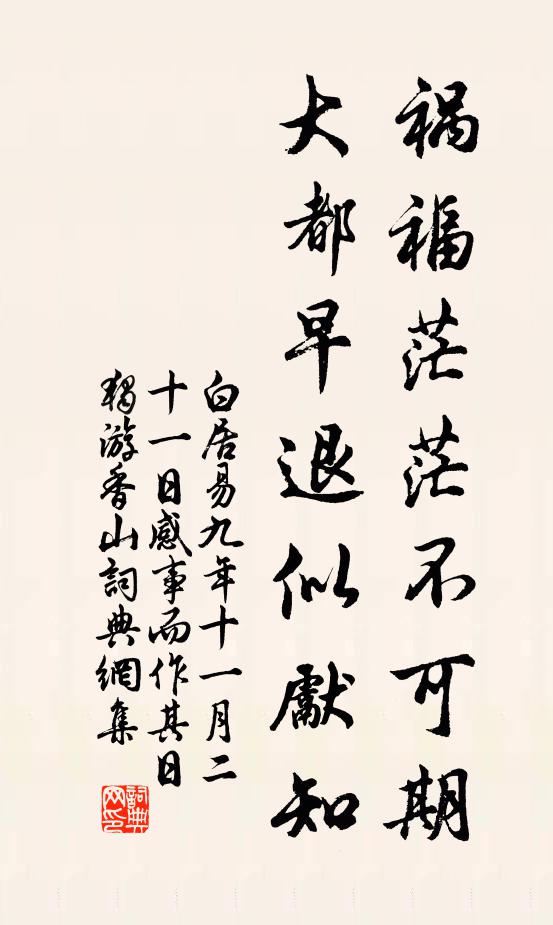 禍福茫茫不可期
大都早退似獻知
白居易九年十一月二
十一日感事而作其日
獨游香山詞典網集
詞典
网印